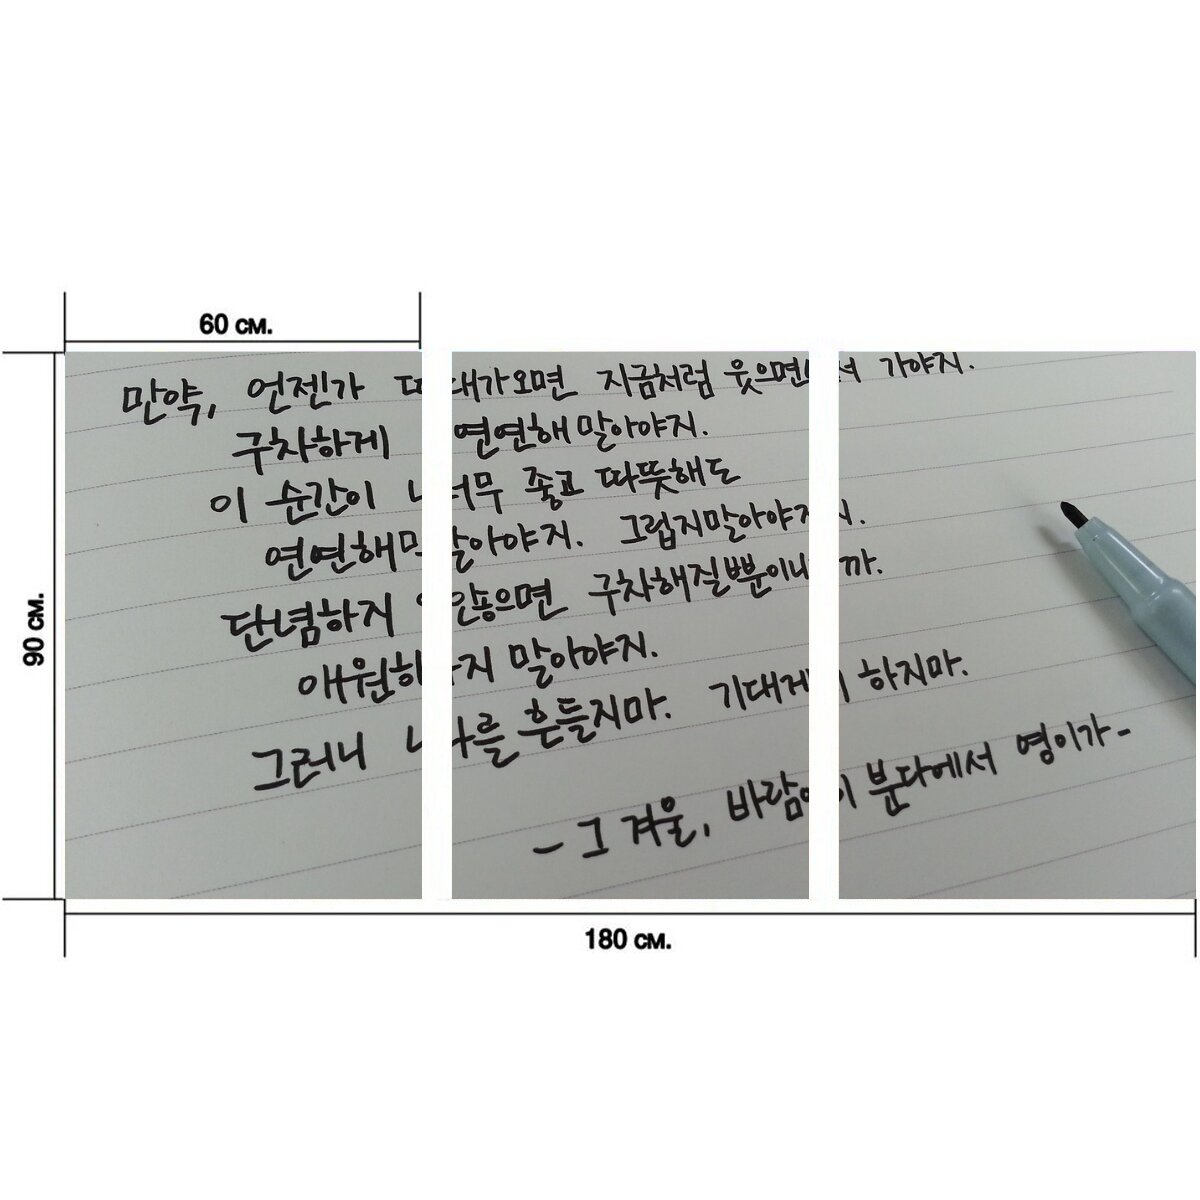 60 см.
90 см.
만약, 언젠가 때가오면 지금처럼 웃으면서 가야지.
구차하게 연연해말아야지.
이 순간이 너무 좋고 따뜻해도
연연해말아야지. 그립지말아야지.
단념하지 않으면 구차해질뿐이니까.
애원하지 말아야지.
그러니 나를 흔들지마. 기대게 하지마.
- 그 겨울, 바람이 분다에서 영이가-
180 см.